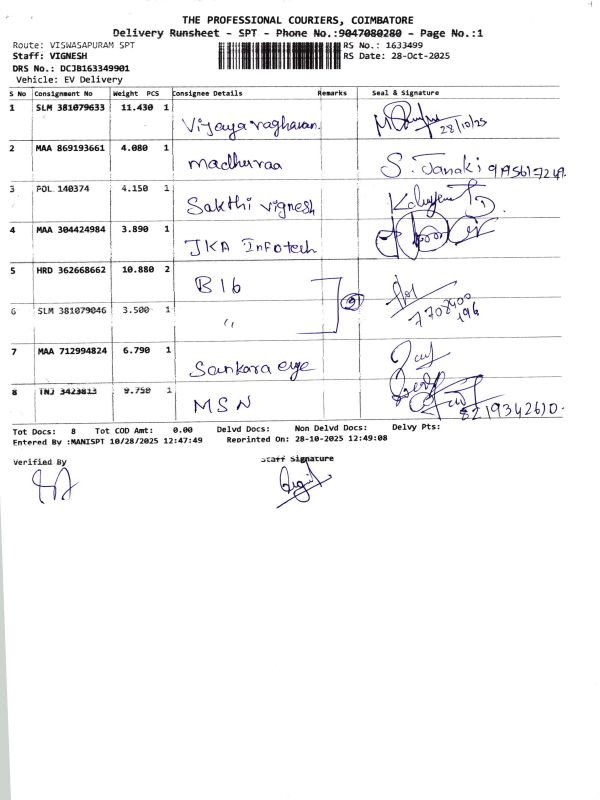 THE PROFESSIONAL COURIERS, COIMBATORE
Delivery Runsheet - SPT - Phone No.:9047080280 - Page No.:1
Route: VISWASAPURAM SPT
RS No.: 1633499
Staff: VIGNESH
RS Date: 28-Oct-2025
DRS No.: DCJB163349901
Vehicle: EV Delivery
S No Consignment No Weight PCS Consignee Details Remarks Seal & Signature
1 SLM 381079633 11.430 1 Vijaya raghavan 28/10/25
2 MAA 869193661 4.080 1 Madhuraa S. Janaki
3 POL 140374 4.150 1 Sakthi Vignesh
4 MAA 304424984 3.890 1 JKA Infotech
5 HRD 362668662 10.880 2 B16
6 SLM 381079046 3.500 1 "
7702400
196
7 MAA 712994824 6.790 1 Sankara eye
8 TNJ 3423813 9.750 1 MSN 8219342610.
Tot Docs: 8 Tot COD Amt: 0.00 Delvd Docs: Non Delvd Docs: Delvy Pts:
Entered By :MANISPT 10/28/2025 12:47:49 Reprinted On: 28-10-2025 12:49:08
Verified By Staff Signature